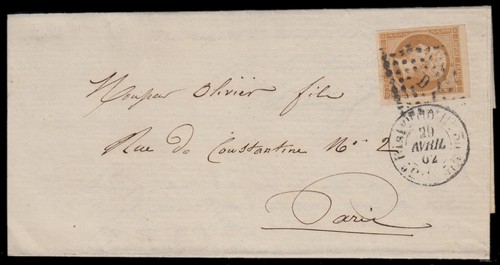 Monsieur Olivier fils
Rue de Constantine No 2
Paris
D
29
AVRIL
62